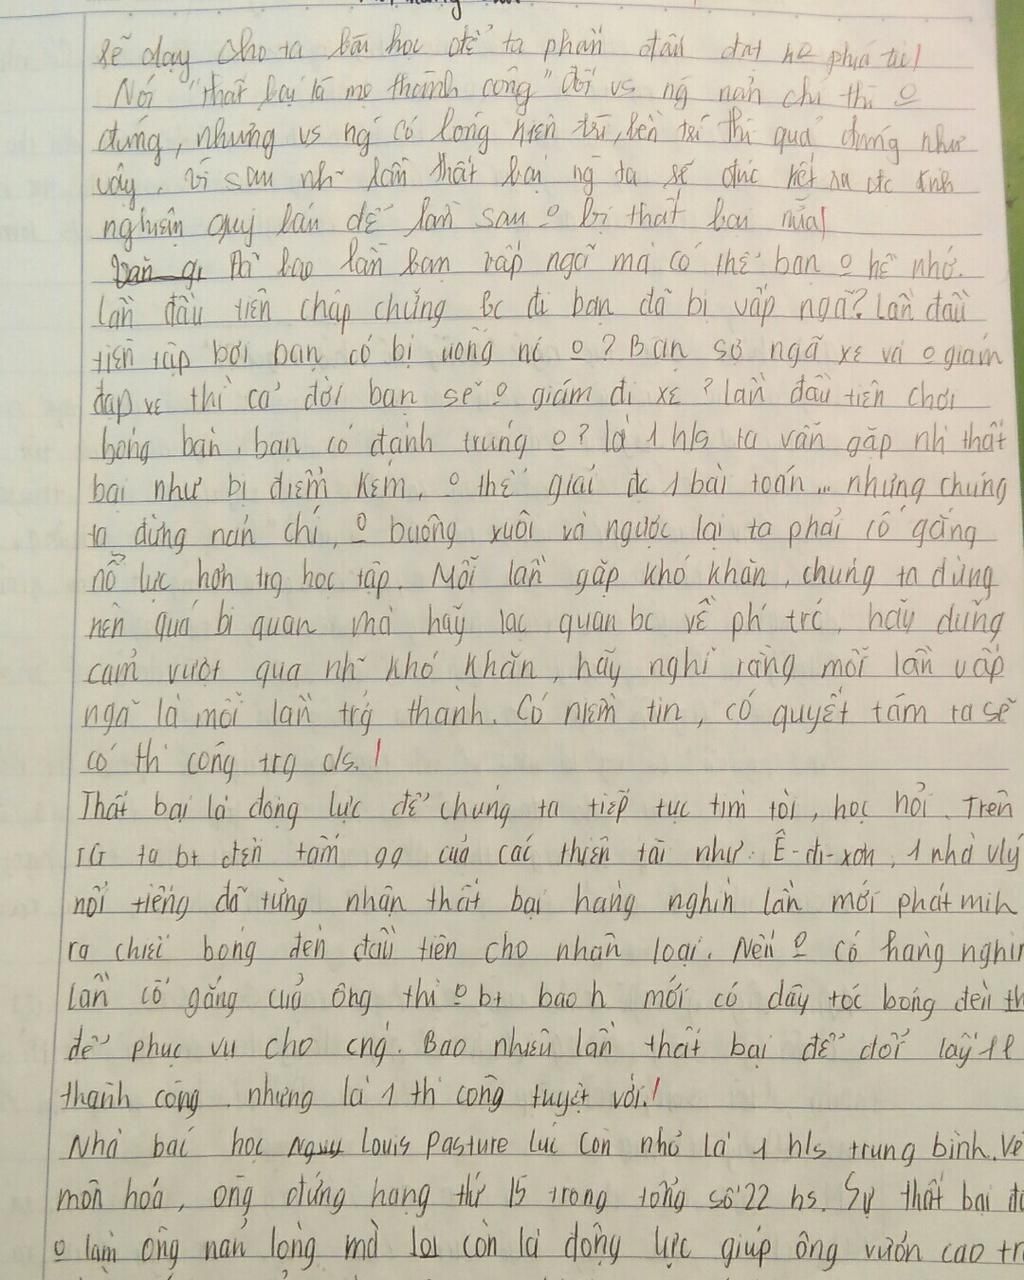 sẽ dạy cho ta bài học để ta phấn đấu đạt
Nói "thất bại là mẹ thành công" đối vs ng nản chí thì o
đúng, nhưng vs ng có lòng kiên trì, bền trí thì quả đúng như
vậy. Vì sau nh~ lần thất bại ng ta sẽ đúc kết ra đc kinh
nghiệm quý báu để lần sau o bị thất bại nữa!
Đã bao lần bạn vấp ngã mà có thể bạn o hề nhớ.
Lần đầu tiên chập chững bc đi bạn đã bị vấp ngã? Lần đầu
tiên tập bơi bạn có bị uống nc o? Bạn sợ ngã xe và o giám
đạp xe thì cả đời bạn sẽ o giám đi xe? lần đầu tiên chơi
bóng bàn, bạn có đánh trúng o? là 1 hls ta vẫn gặp nh~ thất
bại như bị điểm kém, o thể giải đc 1 bài toán... nhưng chúng
ta đừng nản chí, o buông xuôi và ngược lại ta phải cố gắng
nỗ lực hơn trg học tập. Mỗi lần gặp khó khăn, chúng ta đừng
nên quá bi quan mà hãy lạc quan bc về phí trc, hãy dũng
cảm vượt qua nh~ khó khăn, hãy nghĩ rằng mỗi lần vấp
ngã là mỗi lần trg thành. Có niềm tin, có quyết tâm ta sẽ
có th công trg c/s.!
Thất bại là động lực để chúng ta tiếp tục tìm tòi, học hỏi. Trên
TG ta bt đến tấm gg của các thiên tài như: Ê-đi-xơn, 1 nhà vlý
nổi tiếng đã từng nhận thất bại hàng nghìn lần mới phát mih
ra chiếc bóng đèn đầu tiên cho nhân loại. Nếu o có hàng nghìn
lần cố gắng của ông thì o bt bao h mới có dây tóc bóng đèn
để phục vụ cho cng. Bao nhiêu lần thất bại để đổi lấy 1
thành công. nhưng là 1 th công tuyệt vời.!
Nhà bác học Louis Pasture lúc còn nhỏ là 1 hls trung bình. Về
môn hoá, ông đứng hạng thứ 15 trong tổng số 22 hs. Sự thất bại đó
o làm ông nản lòng mà lại còn là động lực giúp ông vươn cao